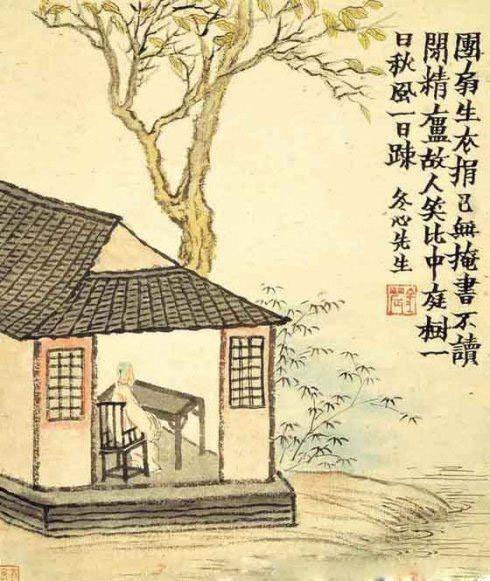 團扇生衣捐已無掩書不讀
閉精廬故人笑比中庭樹一
日秋風一日踈 冬心先生